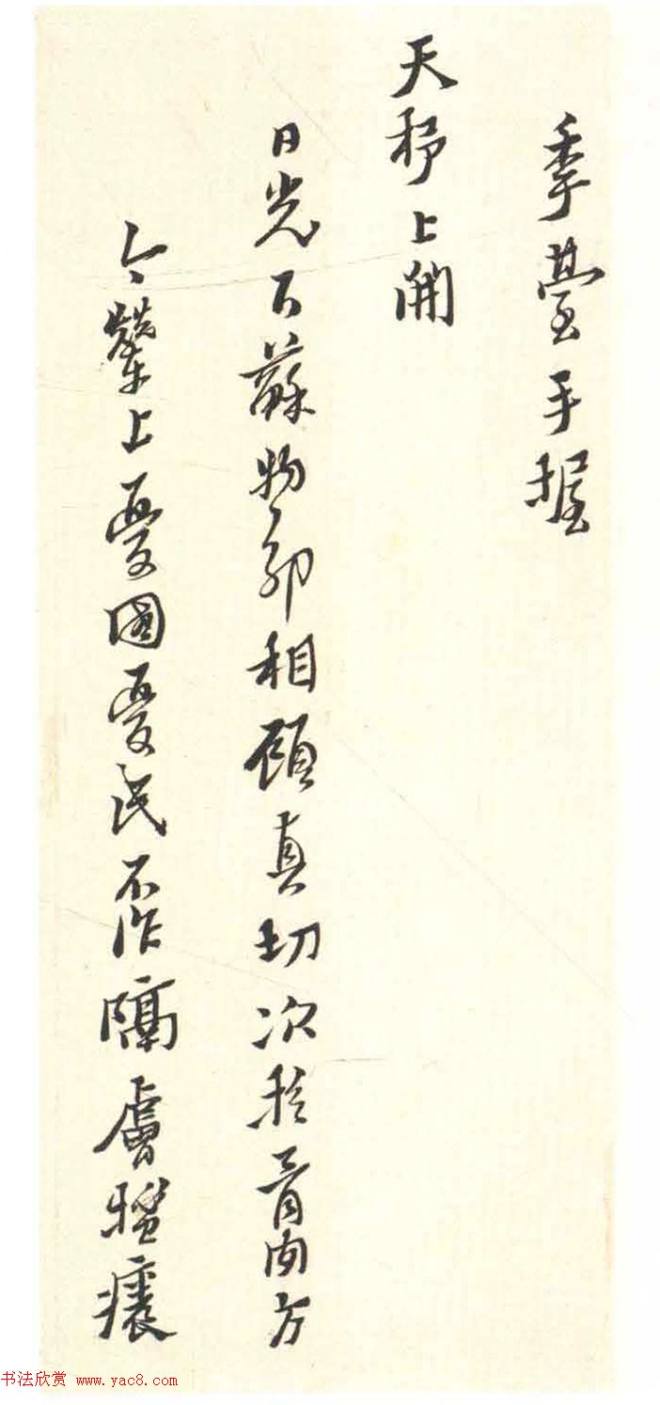 季臺手握
天 上開
日光下蘇物即相顧真切次 胥南方
今輦上憂國憂民不作隔膚 癢
书法欣赏 www.yac8.com